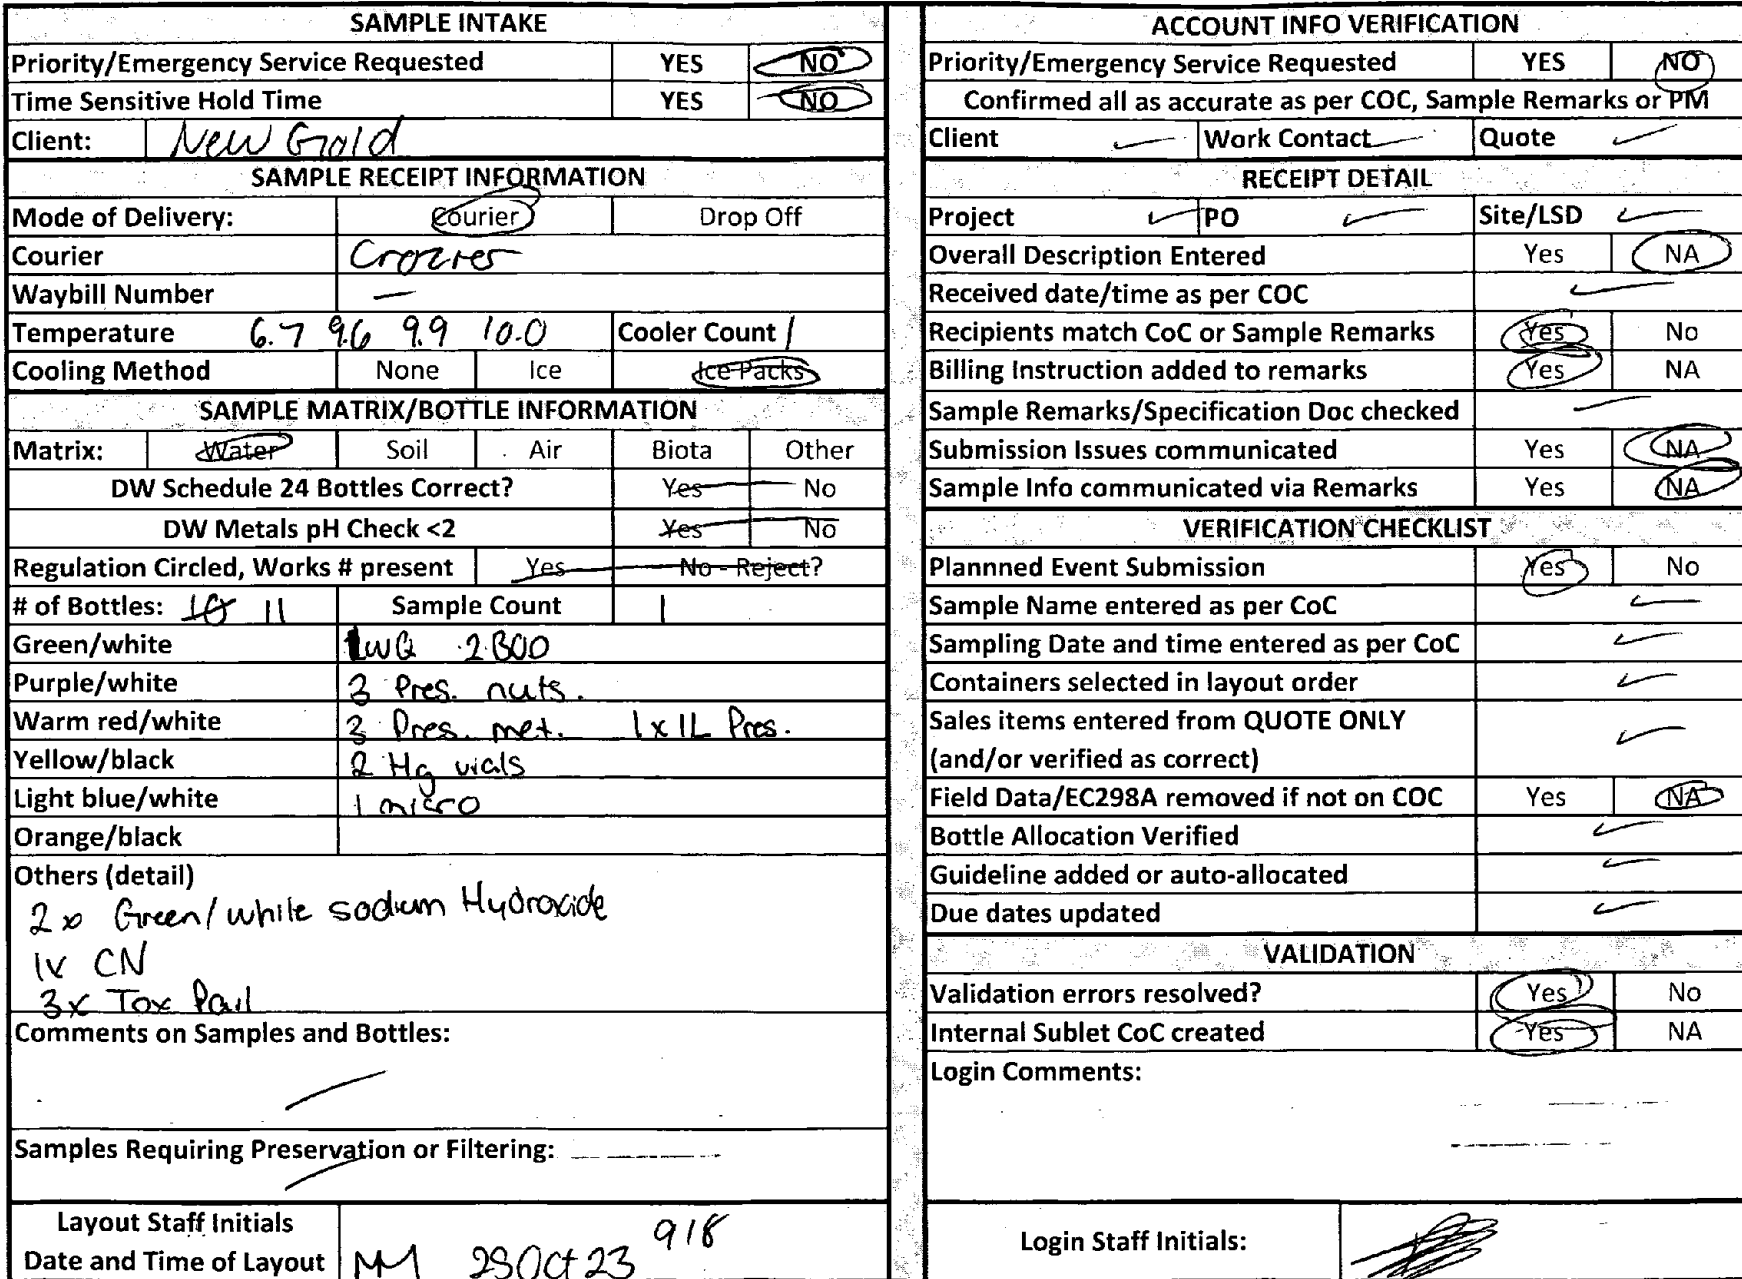 SAMPLE INTAKE
Priority/Emergency Service Requested YES NO
Time Sensitive Hold Time YES NO
Client: New Gold
SAMPLE RECEIPT INFORMATION
Mode of Delivery: Courier Drop Off
Courier Crozier
Waybill Number —
Temperature 6.7 9.6 9.9 10.0 Cooler Count 1
Cooling Method None Ice Ice Packs
SAMPLE MATRIX/BOTTLE INFORMATION
Matrix: Water Soil Air Biota Other
DW Schedule 24 Bottles Correct? Yes No
DW Metals pH Check <2 Yes No
Regulation Circled, Works # present Yes No - Reject?
# of Bottles: 10 11 Sample Count 1
Green/white WQ 2 BOD
Purple/white 3 Pres. nuts.
Warm red/white 3 Pres. met. 1x1L Pres.
Yellow/black 2 Hg vials
Light blue/white 1 micro
Orange/black
Others (detail)
2x Green/white sodium Hydroxide
1x CN
3x Tox Pail
Comments on Samples and Bottles:
Samples Requiring Preservation or Filtering:
Layout Staff Initials
Date and Time of Layout Oct 23 918
ACCOUNT INFO VERIFICATION
Priority/Emergency Service Requested YES NO
Confirmed all as accurate as per COC, Sample Remarks or PM
Client Work Contact Quote
RECEIPT DETAIL
Project PO Site/LSD
Overall Description Entered Yes NA
Received date/time as per COC
Recipients match CoC or Sample Remarks Yes No
Billing Instruction added to remarks Yes NA
Sample Remarks/Specification Doc checked
Submission Issues communicated Yes NA
Sample Info communicated via Remarks Yes NA
VERIFICATION CHECKLIST
Plannned Event Submission Yes No
Sample Name entered as per CoC
Sampling Date and time entered as per CoC
Containers selected in layout order
Sales items entered from QUOTE ONLY
(and/or verified as correct)
Field Data/EC298A removed if not on COC Yes NA
Bottle Allocation Verified
Guideline added or auto-allocated
Due dates updated
VALIDATION
Validation errors resolved? Yes No
Internal Sublet CoC created Yes NA
Login Comments:
Login Staff Initials: